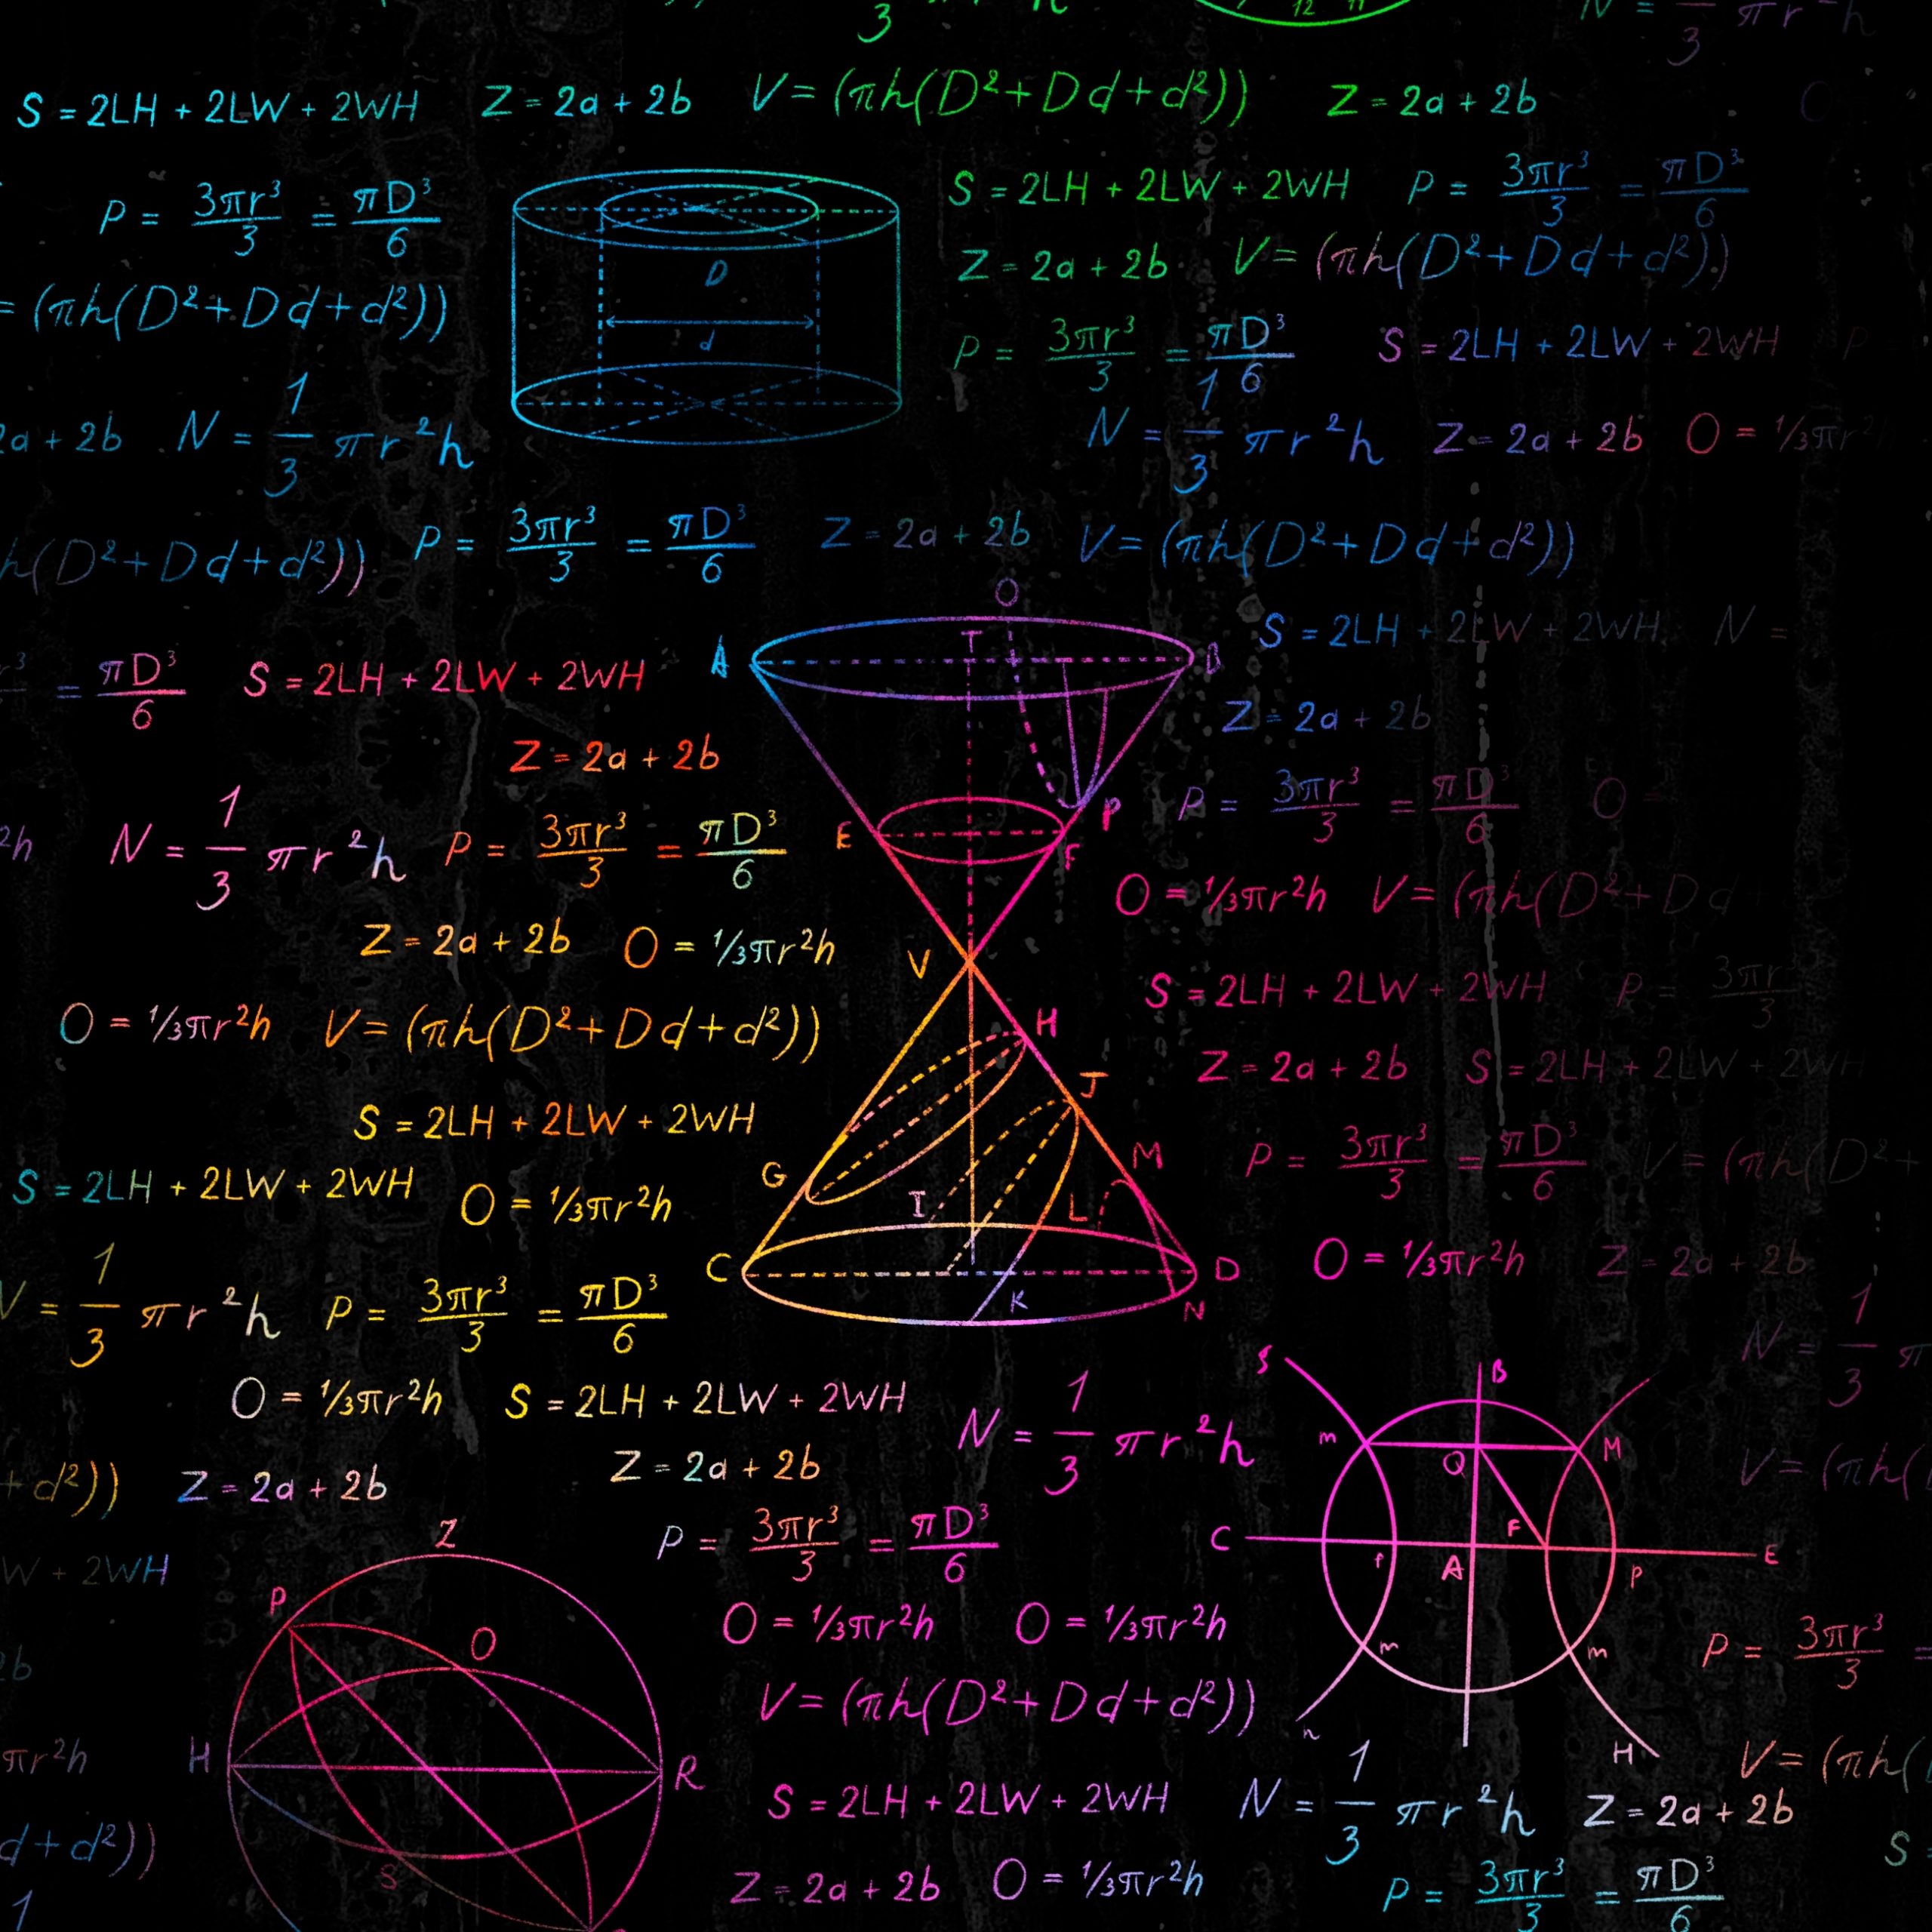 3
12 11
N = 1/3 πr²h
S = 2LH + 2LW + 2WH Z = 2a + 2b V = (πh(D²+Dd+d²)) Z = 2a + 2b
P = 3πr³/3 = πD³/6
S = 2LH + 2LW + 2WH P = 3πr³/3 = πD³/6
D
Z = 2a + 2b V = (πh(D²+Dd+d²))
= (πh(D²+Dd+d²))
d
P = 3πr³/3 = πD³/6 S = 2LH + 2LW + 2WH P
2a + 2b N = 1/3 πr²h
N = 1/3 πr²h Z = 2a + 2b O = 1/3πr²
h(D²+Dd+d²)) P = 3πr³/3 = πD³/6 Z = 2a + 2b V = (πh(D²+Dd+d²))
O
S = 2LH + 2LW + 2WH N =
T
A B
r³ = πD³/6 S = 2LH + 2LW + 2WH
Z = 2a + 2b
Z = 2a + 2b
P = 3πr³/3 = πD³/6 O =
P
²h N = 1/3 πr²h P = 3πr³/3 = πD³/6
E F
O = 1/3πr²h V = (πh(D²+Dd
Z = 2a + 2b O = 1/3πr²h
V
S = 2LH + 2LW + 2WH P = 3πr³/3
O = 1/3πr²h V = (πh(D²+Dd+d²))
H
Z = 2a + 2b S = 2LH + 2LW + 2WH
J
S = 2LH + 2LW + 2WH
P = 3πr³/3 = πD³/6 V = (πh(D²+
M
G
S = 2LH + 2LW + 2WH O = 1/3πr²h
I L
C D
O = 1/3πr²h Z = 2a + 2b
K N
V = 1/3 πr²h P = 3πr³/3 = πD³/6
N = 1/3 π
S B
O = 1/3πr²h S = 2LH + 2LW + 2WH
N = 1/3 πr²h
m Q M
V = (πh(
+ d²)) Z = 2a + 2b
Z = 2a + 2b
Z
P = 3πr³/3 = πD³/6
C F E
W + 2WH
A P
P
2b O
O = 1/3πr²h O = 1/3πr²h
m m
P = 3πr³/3 =
V = (πh(D²+Dd+d²))
n H
πr²h
H R
V = (πh(
S = 2LH + 2LW + 2WH N = 1/3 πr²h Z = 2a + 2b
d + d²))
S
S =
Z = 2a + 2b O = 1/3πr²h
P = 3πr³/3 = πD³/6
1